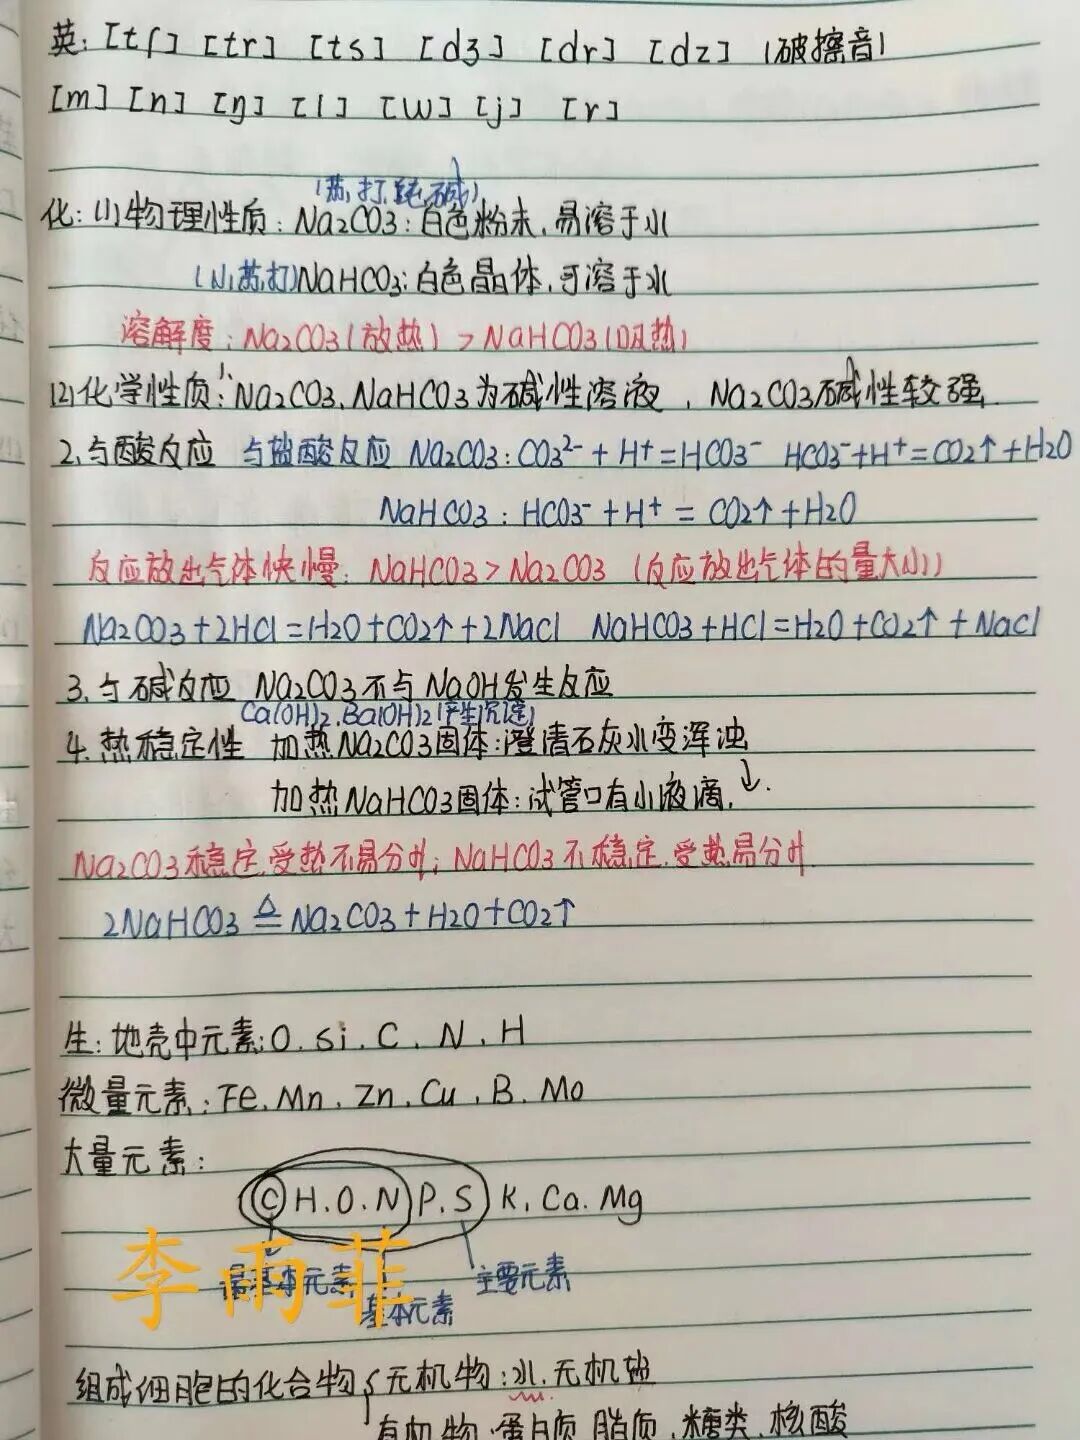 英: [tʃ] [tr] [ts] [dʒ] [dr] [dz] (破擦音)
[m] [n] [ŋ] [l] [w] [j] [r]
(苏打.纯碱)
化: (1)物理性质: Na2CO3: 白色粉末.易溶于水
(小苏打)NaHCO3: 白色晶体.可溶于水
溶解度: Na2CO3(放热) > NaHCO3(吸热)
(2)化学性质: 1. Na2CO3、NaHCO3为碱性溶液, Na2CO3碱性较强
2.与酸反应 与盐酸反应 Na2CO3: CO3²⁻ + H⁺ = HCO3⁻ HCO3⁻ + H⁺ = CO2↑ + H2O
NaHCO3: HCO3⁻ + H⁺ = CO2↑ + H2O
反应放出气体快慢: NaHCO3 > Na2CO3 (反应放出气体的量大小)
Na2CO3 + 2HCl = H2O + CO2↑ + 2NaCl NaHCO3 + HCl = H2O + CO2↑ + NaCl
3.与碱反应 Na2CO3不与NaOH发生反应
Ca(OH)2.Ba(OH)2(产生沉淀)
4.热稳定性 加热Na2CO3固体: 澄清石灰水变浑浊
加热NaHCO3固体: 试管口有小液滴. ↓.
Na2CO3稳定.受热不易分分; NaHCO3不稳定.受热易分
2NaHCO3 ≜ Na2CO3 + H2O + CO2↑
生: 地壳中元素: O. Si. C. N. H
微量元素: Fe. Mn. Zn. Cu. B. Mo
大量元素:
C H.O.N P.S K. Ca. Mg
最基本元素 主要元素
基本元素
李雨菲
组成细胞的化合物 { 无机物: 水.无机盐
有机物: 蛋白质.脂质.糖类.核酸